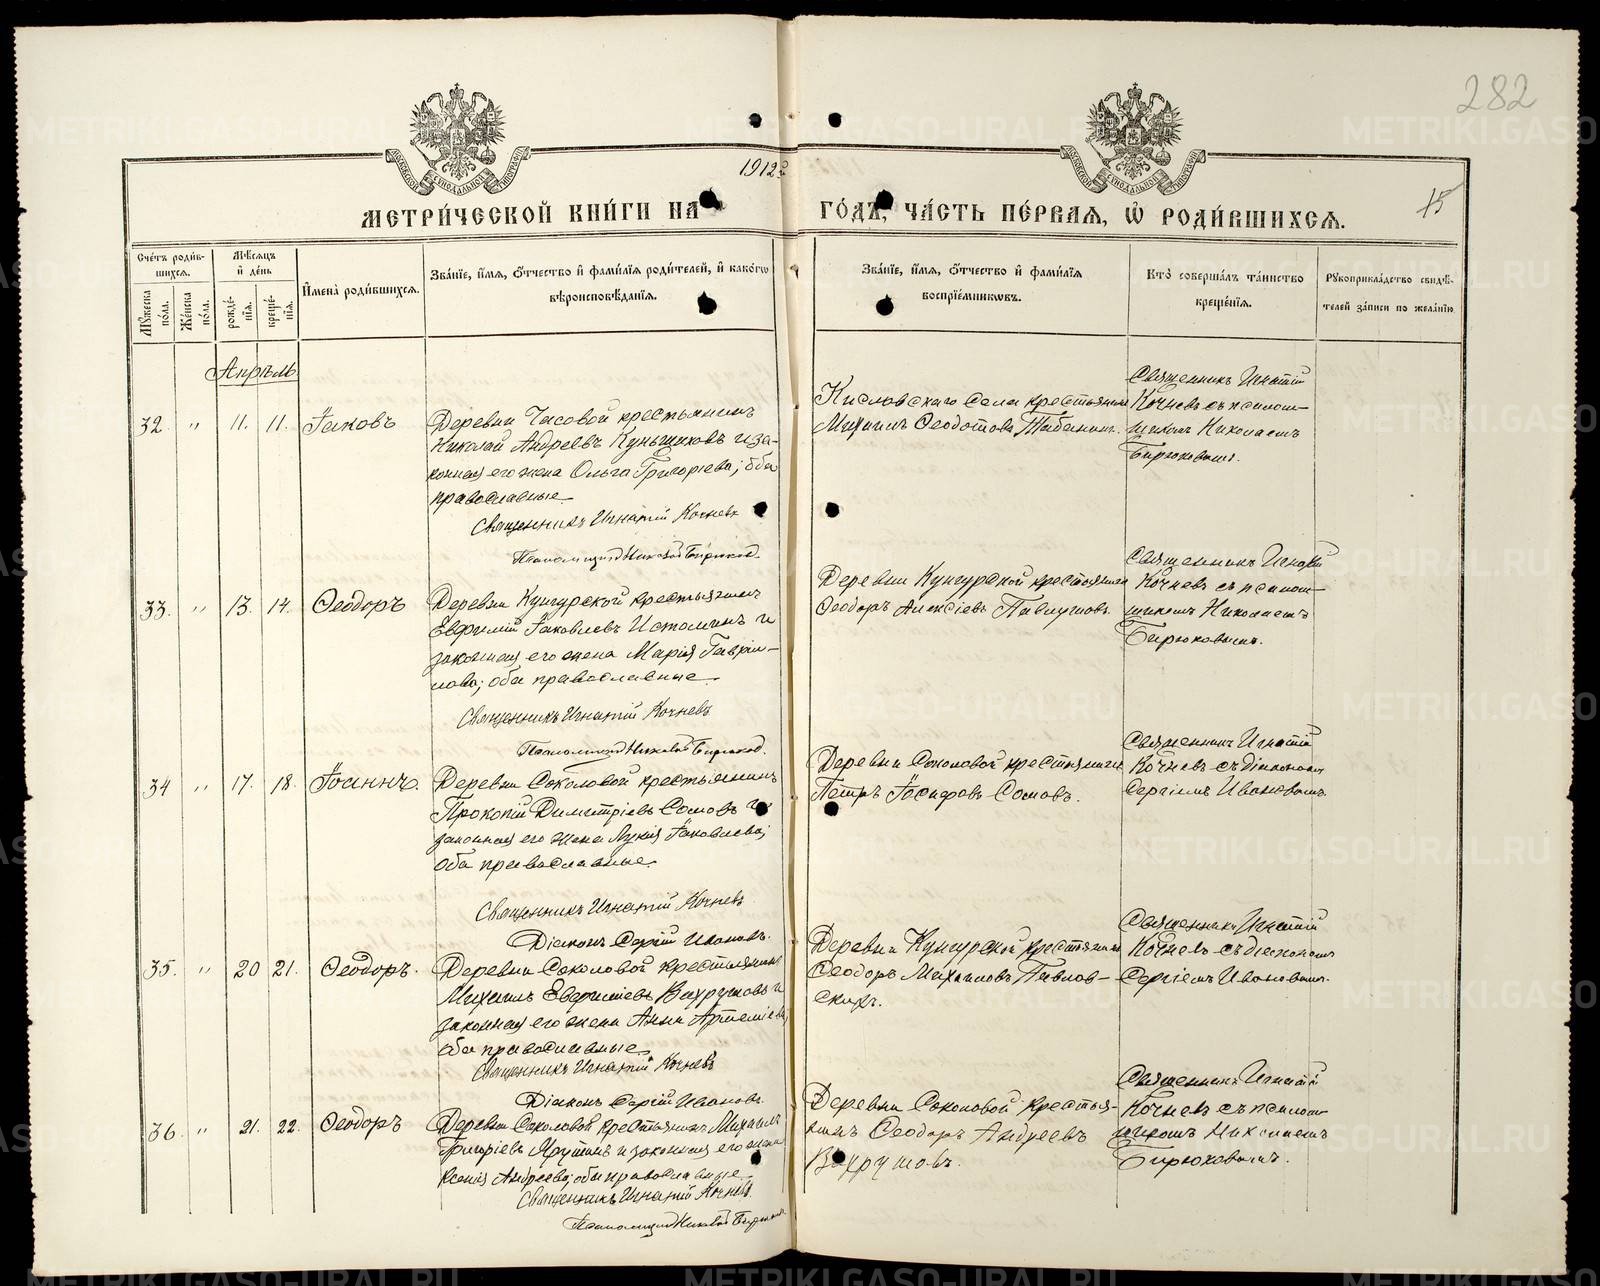 282
1912 г
15
МЕТРИ́ЧЕСКОЙ КНИ́ГИ НА ГО́ДЪ, ЧА́СТЬ ПЕ́РВАЯ, Ѽ РОДИ́ВШИХСЯ.
Сче́тъ роди́в-
шихся.
Му́жеска по́ла.
Же́нска по́ла.
Мѣ́сяцъ
и҆ де́нь
рожде́-
нїя.
креще́-
нїя.
И҆мена̀ роди́вшихся.
Зва́нїе, и҆́мя, ѻ҆́тчество и҆ фами́лїя роди́телей, и҆ како́гѡ
вѣроисповѣ́данїя.
Зва́нїе, и҆́мя, ѻ҆́тчество и҆ фами́лїя
воспрїе́мникѡвъ.
Кто̀ соверша́лъ та́инство
креще́нїя.
Рꙋкоприкла́дство свидѣ́-
телей за́писи по жела́нїю
Апрѣль
32. " 11. 11. Іаковъ
Деревни Часовой крестьянинъ
Николай Андреевъ Куньщиковъ и за-
конная его жена Ольга Григоріева; оба
православные
Священникъ Игнатій Кочневъ
Псаломщикъ Николай Бирюков.
Кисловскаго Села крестьянинъ
Михаилъ Ѳеодотовъ Табатчиковъ.
Священникъ Игнатій
Кочневъ съ псалом-
щикомъ Николаемъ
Бирюковымъ.
33. " 13. 14. Ѳеодоръ
Деревни Кунгурской крестьянинъ
Евфимій Іаковлевъ Истоминъ и
законная его жена Марія Гаврии-
лова; оба православные
Священникъ Игнатій Кочневъ
Псаломщикъ Николай Бирюков.
Деревни Кунгурской крестьянинъ
Ѳеодоръ Алексіевъ Павлушовъ.
Священникъ Игнатій
Кочневъ съ псалом-
щикомъ Николаемъ
Бирюковымъ.
34 " 17. 18. Іоаннъ.
Деревни Соколовой крестьянинъ
Прокопій Димитріевъ Сомовъ и
законная его жена Лукія Іаковлева;
оба православные
Священникъ Игнатій Кочневъ
Діаконъ Сергій Ивановъ.
Деревни Соколовой крестьянинъ
Петръ Іосифовъ Сомовъ.
Священникъ Игнатій
Кочневъ съ діакономъ
Сергіемъ Ивановымъ.
35. " 20 21. Ѳеодоръ.
Деревни Соколовой крестьянинъ
Михаилъ Евфиміевъ Вахрушовъ и
законная его жена Анна Артеміева;
оба православные
Священникъ Игнатій Кочневъ
Діаконъ Сергій Ивановъ.
Деревни Кунгурской крестьянинъ
Ѳеодоръ Михаиловъ Павлов-
скихъ.
Священникъ Игнатій
Кочневъ съ діакономъ
Сергіемъ Ивановымъ.
36. " 21. 22. Ѳеодоръ
Деревни Соколовой крестьянинъ Михаилъ
Григоріевъ и законная его жена
Ксенія Андреева; оба православные
Священникъ Игнатій Кочневъ
Псаломщикъ Николай Бирюков
Деревни Соколовой крестья-
нинъ Ѳеодоръ Андреевъ
Вахрушовъ.
Священникъ Игнатій
Кочневъ съ псалом-
щикомъ Николаемъ
Бирюковымъ.
METRIKI.GASO-URAL.RU